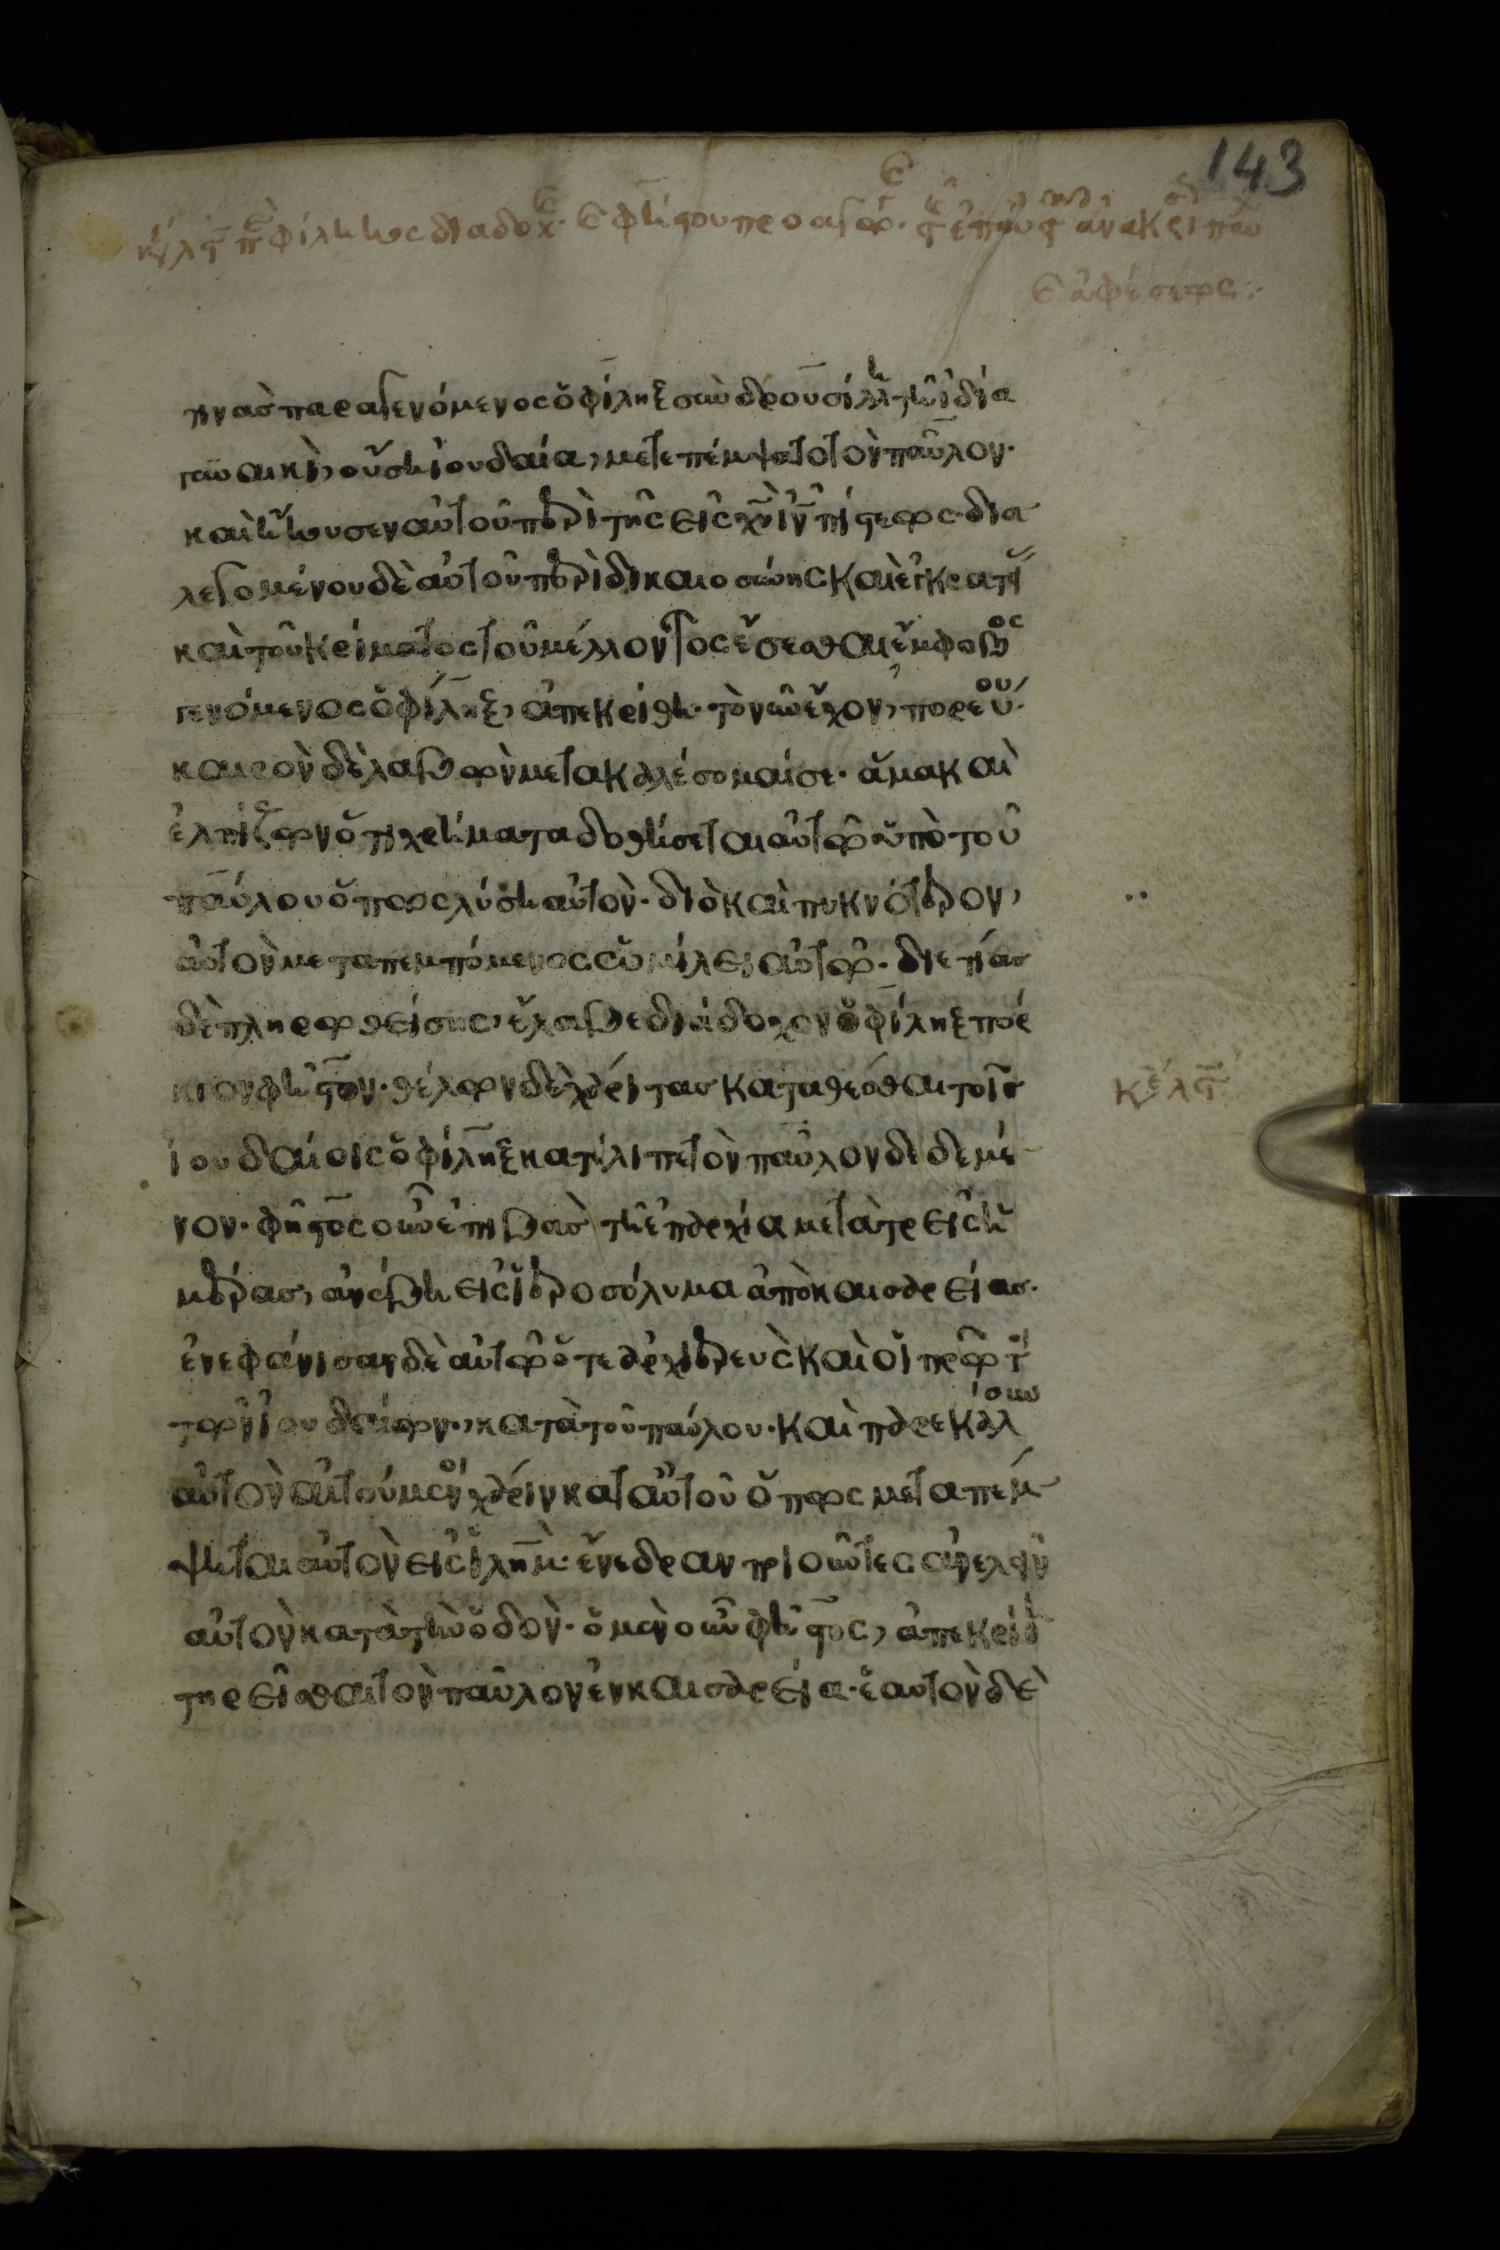 143
κε λς π φίληκος διαδοχ κ φήστου προαγωγ
κ ἀφέσεως
τινὰς παραγενόμενος ὁ φίληξ σὺν δρουσίλλη τῆ ἰδία
γυναικὶ, οὔση ἰουδαία, μετεπέμψατο τὸν παῦλον·
καὶ ἤκουσεν αὐτοῦ περὶ τῆς εἰς χν ιν πίστεως· δια
λεγομένου δὲ αὐτοῦ περὶ δικαιοσύνης καὶ ἐγκρατ
καὶ τοῦ κρίματος τοῦ μέλλοντος ἔσεσθαι ἔμφοβος
γενόμενος ὁ φίληξ, ἀπεκρίθη· τὸ νῦν ἔχον, πορεύου·
καιρὸν δὲ λαβὼν μετακαλέσομαί σε· ἅμα καὶ
ἐλπίζων ὅτι χρήματα δοθήσεται αὐτῶ ὑπὸ τοῦ
παύλου ὅπως λύση αὐτὸν· διὸ καὶ πυκνότερον,
αὐτὸν μεταπεμπόμενος ὡμίλει αὐτῶ· διετίας
δὲ πληρωθείσης, ἔλαβε διάδοχον ὁ φίληξ πόρ
κιον φῆστον· θέλων δὲ χάριτας καταθέσθαι τοῖς
κε λς
ἰουδαίοις ὁ φίληξ κατέλιπε τὸν παῦλον δεδεμέ
νον· φῆστος οὖν ἐπιβὰς τῆ ἐπαρχία μετὰ τρεῖς ἡ
μέρας, ἀνέβη εἰς ἱεροσόλυμα ἀπὸ καισαρείας·
ἐνεφάνισαν δὲ αὐτῶ ὅ τε ἀρχιερεὺς καὶ οἱ πρῶτοι
τῶν ἰουδαίων, κατὰ τοῦ παύλου· καὶ παρεκάλ
αὐτὸν αἰτούμενοι χάριν κατ αὐτοῦ ὅπως μεταπέμ
ψηται αὐτὸν εἰς ιλημ· ἔνεδραν ποιοῦντες ἀνελεῖν
αὐτὸν κατὰ τὴν ὁδὸν· ὁ μὲν οὖν φῆστος, ἀπεκρίθη
τηρεῖσθαι τὸν παῦλον ἐν καισαρεία· ἑαυτὸν δὲ